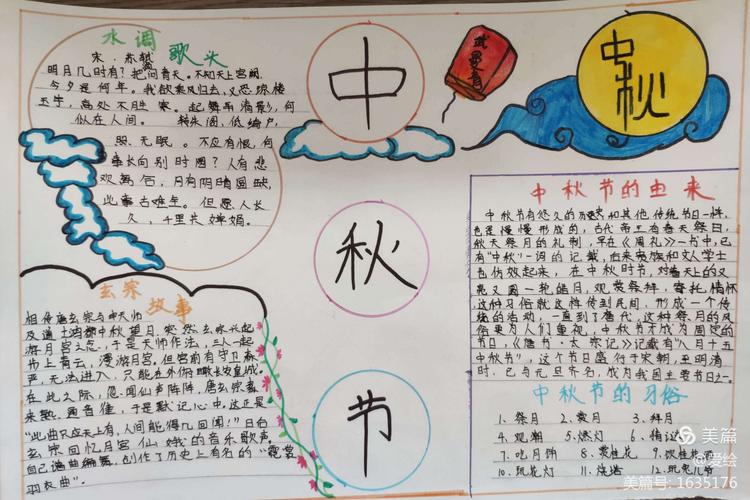 水调歌头
宋·苏轼
明月几时有?把问青天。不知天上宫阙,
今夕是何年。我欲乘风归去,又恐琼楼
玉宇,高处不胜寒。起舞弄清影,何
似在人间。 转朱阁,低绮户,
照无眠。不应有恨,何
事长向别时圆?人有悲
欢离合,月有阴晴圆缺,
此事古难全。但愿人长
久,千里共婵娟。
玄宗故事
相传唐玄宗与申天师
及道士鸿都中秋望月,突然玄宗兴起
游月宫之念,于是天师作法,三人一起
步上青云,漫游月宫。但宫前有守卫森
严,无法进入,只能在外俯瞰长安皇城。
在此之际,忽闻仙声阵阵,唐玄宗素
来熟通音律,于是默记心中。这正是
"此曲只应天上有,人间能得几回闻!"日后
玄宗回忆月宫仙娥的音乐歌声,
自己谱曲编舞,创作了历史上有名的"霓裳
羽衣曲"。
中
秋
节
中秋
中秋节的由来
中秋节有悠久的历史和其他传统节日一样,
也是慢慢形成的,古代帝王有春天祭日,
秋天祭月的礼制,早在《周礼》一书中,已
有"中秋"一词的记载,后来贵族和文人学士
也仿效起来,在中秋时节,对着天上的又
亮又圆一轮皓月,观赏祭拜,寄托情怀
这种习俗就这样传到民间,形成一个传
统的活动,一直到了唐代,这种祭月的风
俗更为人们重视,中秋节才成为固定的
节日,《唐书·太宗记》记载有"八月十五
中秋节",这个节日盛行于宋朝,至明清
时,已与元旦齐名,成为我国主要节日之一。
中秋节的习俗
1、祭月 2、赏月 3、拜月
4、观潮 5、燃灯 6、猜谜
7、吃月饼 8、赏桂花 9、饮桂花酒
10、玩花灯 11、烧塔 12、玩兔儿爷
美篇
@爱绘
美篇号: 1635176